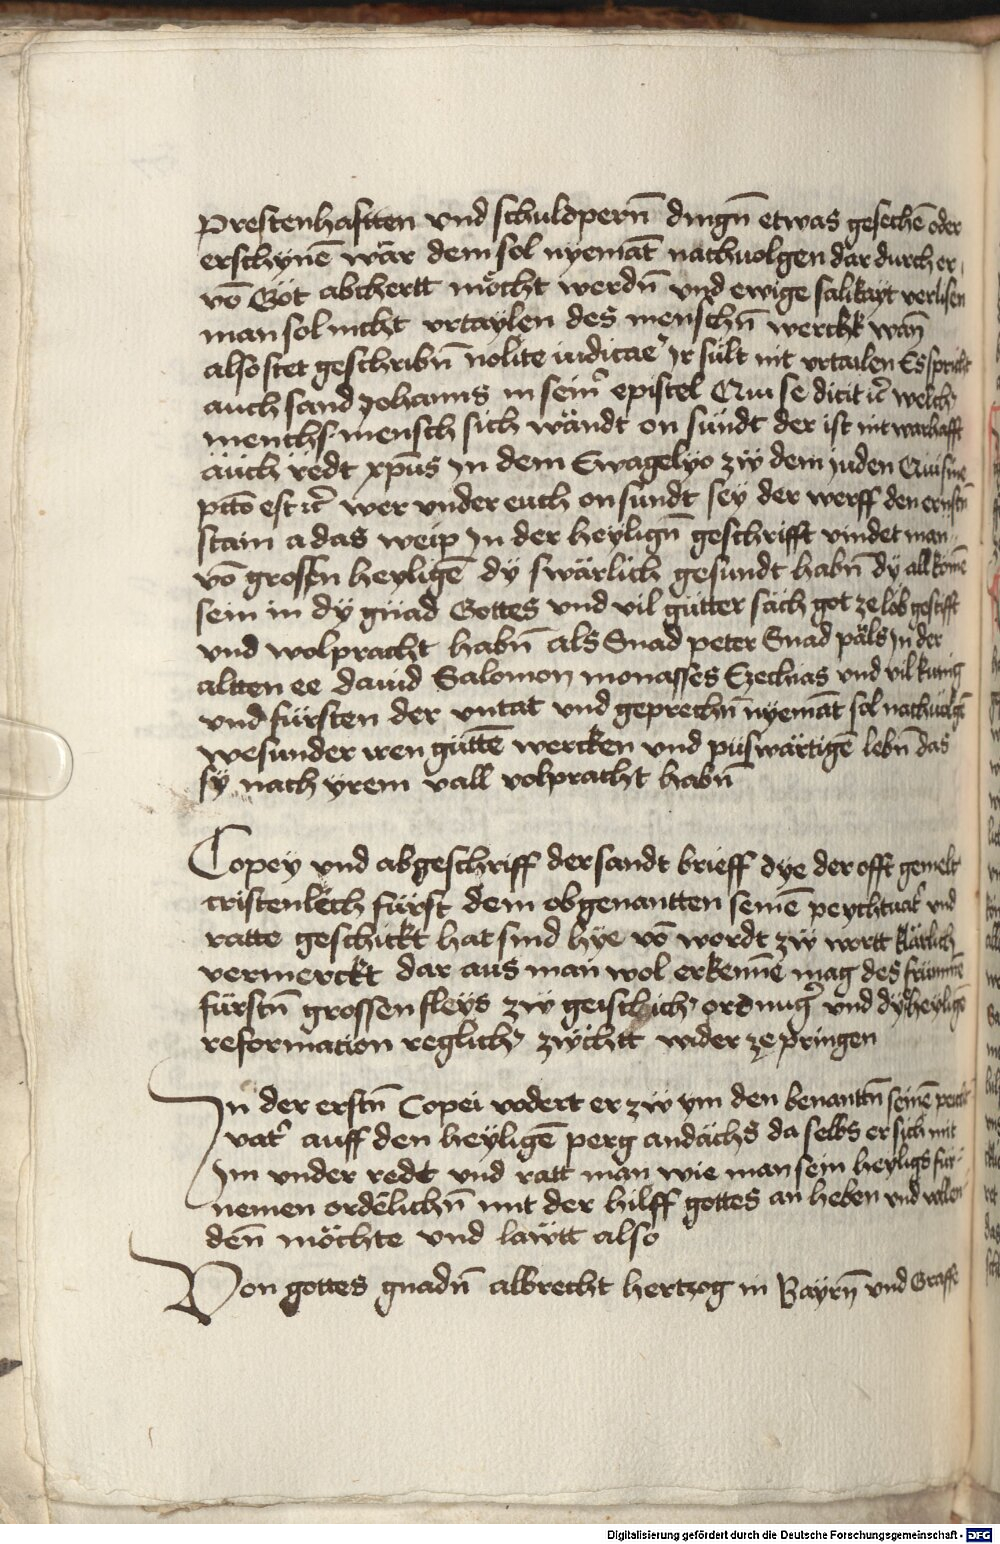 prestenhafften vnd schuldpern̄ dingn̄ etwas gesechē oder
erschynē wär dem sol nyemāt nachuolgen dar durch er
vō Got abchertt möcht werdn̄ vnd ewige salikayt verlisen
man sol nicht vrtaylen des menschn̄ werckh wan̄
also stet geschribn̄ nolite iudicare Ir sült nit vrtailen Es spricht
auch sand Johanns in seinr epistel Qui se dicit ꝛc̄ welch
menchs mensch sich wändt on sündt der ist nit warhafft
auch redt xp̄us In dem Ewagelyo zw̎ dem juden Qui sine
pctō est ꝛc̄ wer vnder euch on sündt sey der werff den erstn̄
stain a das weip In der heylign̄ geschrifft vindet man
vō grossen heyligē dÿ swärlich gesundt habn̄ dÿ all komē
sein in dÿ gnad Gottes vnd vil gütter säch got ze lob gestifft
vnd wolpracht habn̄ als Snad peter Snad päls In der
altten ee dauid Salomon monasses Ezechias vnd vil kunig
vnd fürsten der vntat vnd geprechn̄ nyemāt sol nachuolgē
wesunder iren güttē wercken vnd püswärtigē lebn̄ das
sÿ nach yrem vall volpracht habn̄
Copey vnd abgeschrifft der sandt brieff dye der offt gemelt
cristenlich fürst dem obgenantten seinē peychtuatr vnd
ratte geschickt hat sind hye vō wordt zw̎ wortt klärlich
vermerckt dar aus man wol erkennē mag des frummē
fürstn̄ grossen fleys zw̎ geistlichr ordnug vnd dÿ heyligē
reformation reglichr züchtt wider ze pringen
In der erstn̄ Copei vodert er zw̎ ym den benanttn̄ seinē peicht
vatr auff den heyligē perg andächs da selbs er sich mit
Im vnder redt vnd ratt man wie man sein heyligs für
nemen ordēlichn̄ mit der hilff gottes an heben vnd volen
den̄ möchte vnd lawtt also
Von gottes gnadn̄ albrecht hertzog in Bayrn̄ vnd Graffe
Digitalisierung gefördert durch die Deutsche Forschungsgemeinschaft - DFG